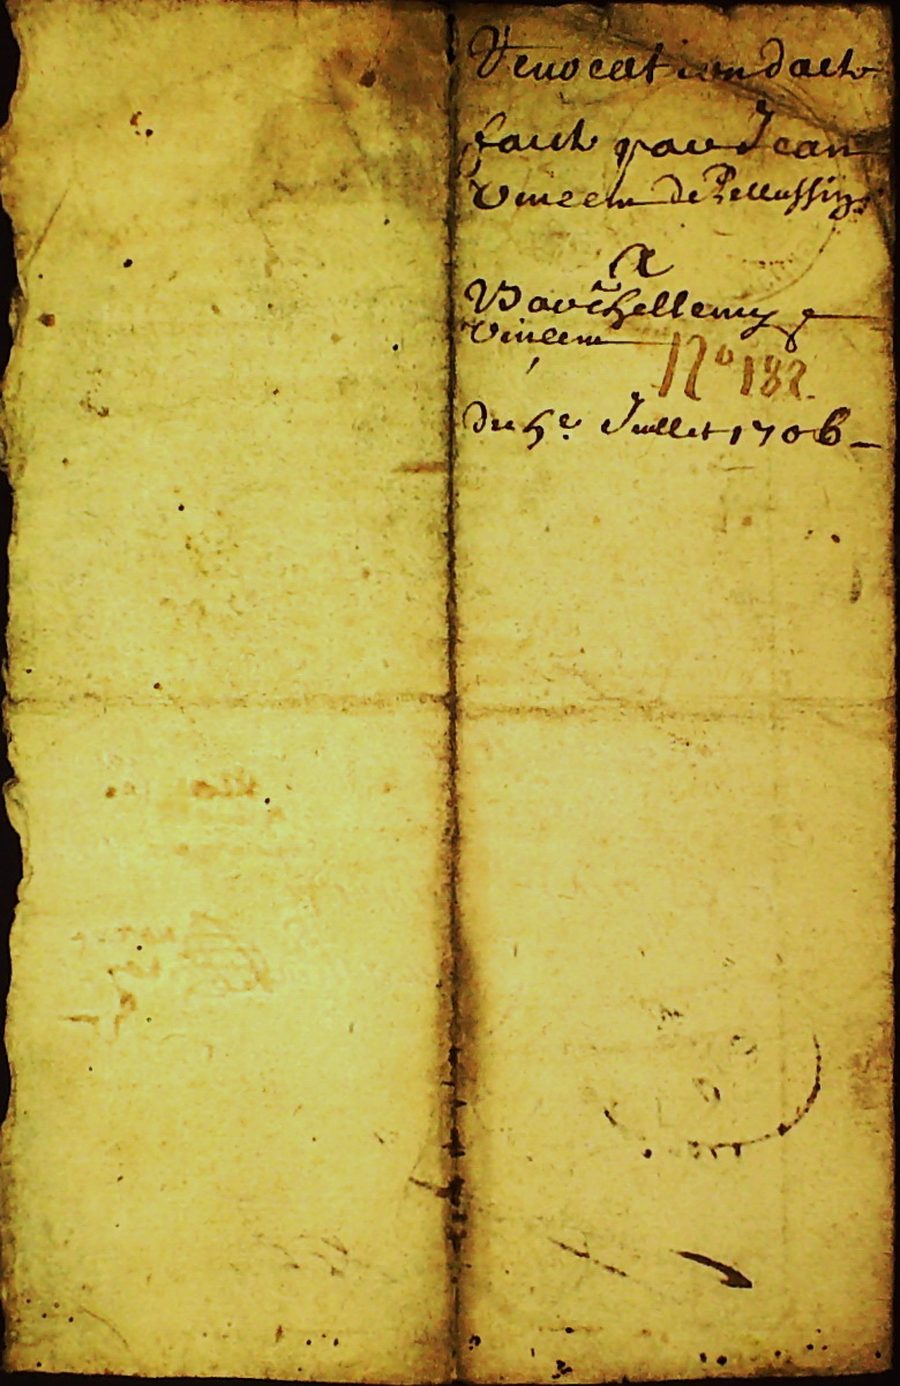 Revocation dacte
faicte par Jean
Vincent de Pellussin
A
Barthellemy
Vincent
N° 182.
du 5e. Juillet 1706